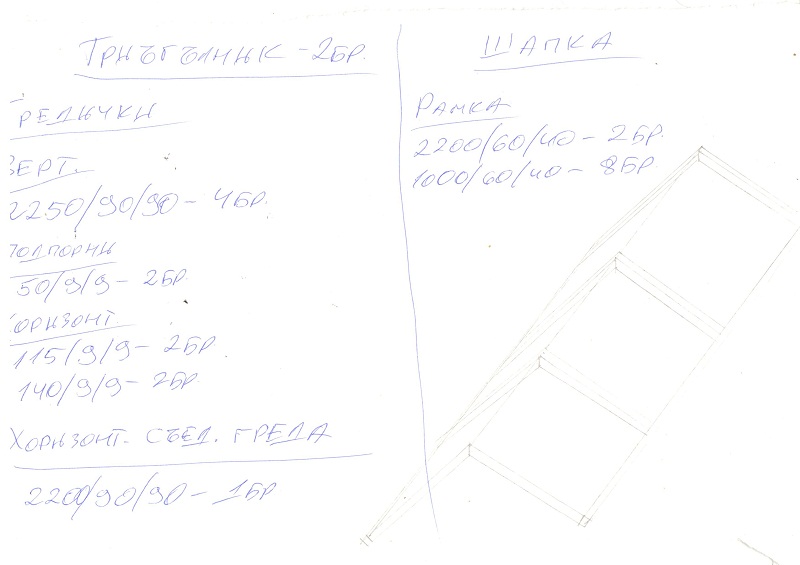 ТРИЪГЪЛНИК - 2БР.
ГРЕДИЧКИ
ВЕРТ.
2250/90/90 - 4БР.
ПОДПОРНИ
50/9/9 - 2БР
ХОРИЗОНТ
115/9/9 - 2БР
140/9/9 - 2БР
ХОРИЗОНТ. СЪЕД. ГРЕДА
2200/90/90 - 1БР
ШАПКА
РАМКА
2200/60/40 - 2БР.
1000/60/40 - 8БР